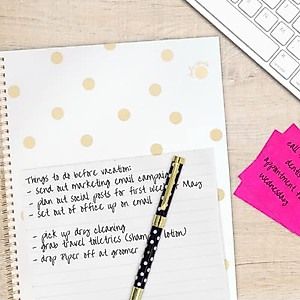 Things to do before vacation:
- send out marketing email campaign
- plan out social posts for first week May
- set out of office up on email
- pick up dry cleaning
- grab travel toiletries (sham lotion)
- drop piper off at groomer
call
appointment
wednesday